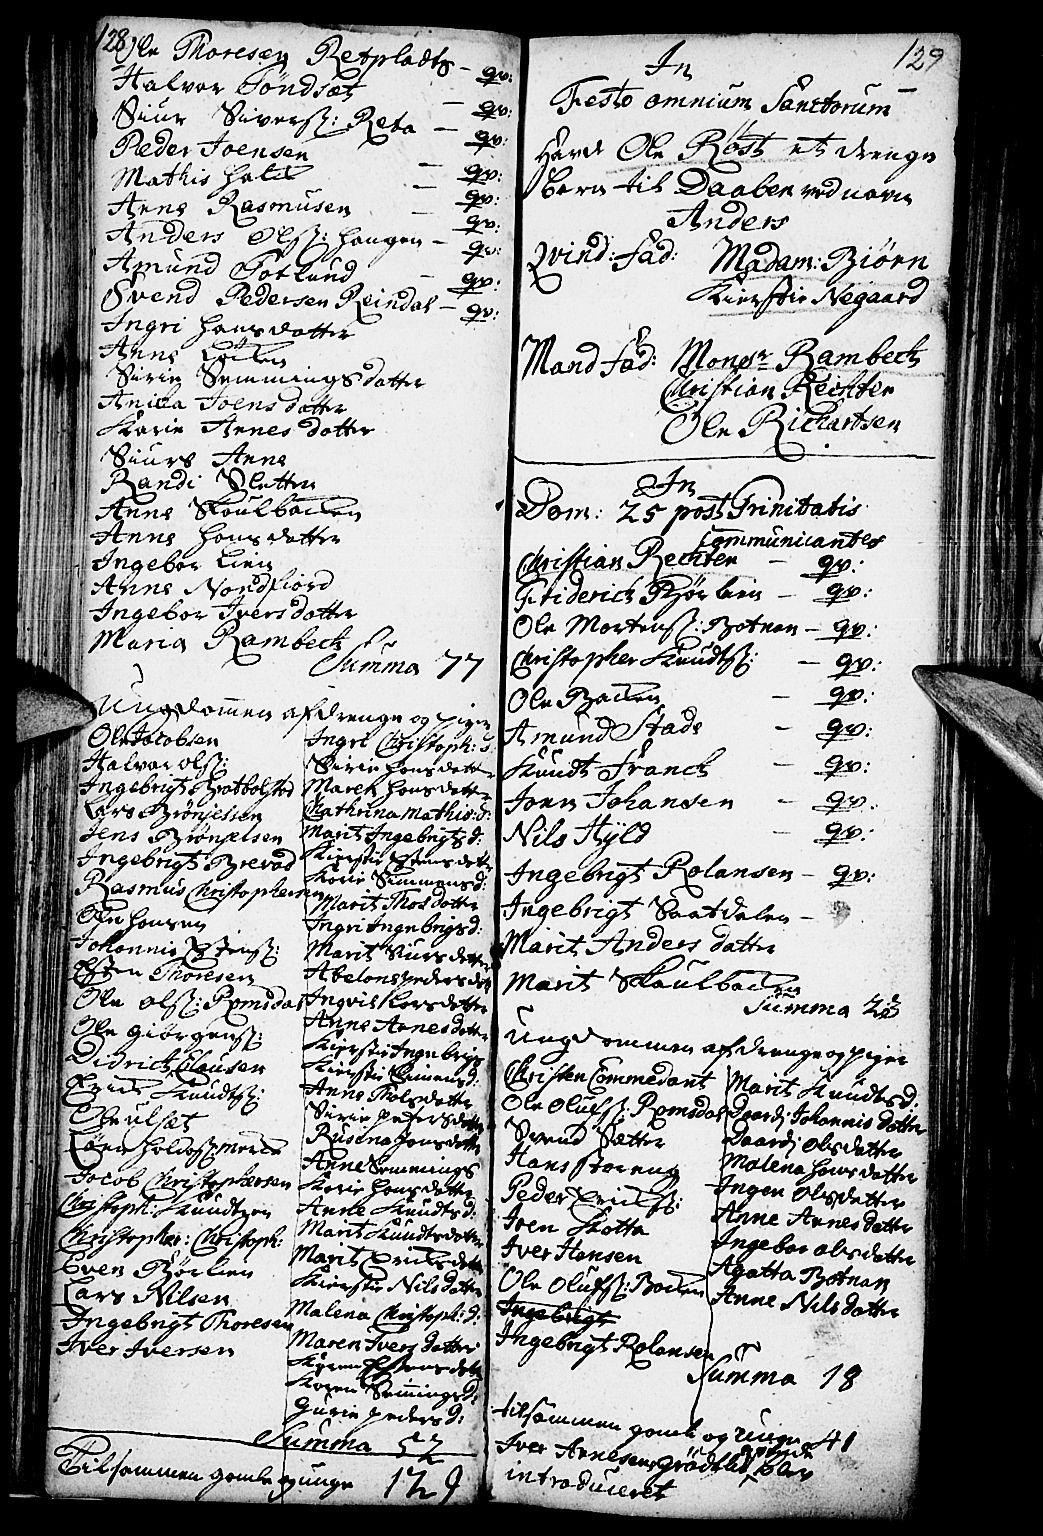 128
Ole Thoresen Retpladts - qv:
Halvor Töndsæt - qv:
Siur Sivers: Reta - qv:
Peder Joensen - qv:
Mathis - qv:
Arne Rasmusen - qv:
Anders Ols: Haugen - qv:
Amund Totlund - qv:
Svend Pedersen Reindal - qv:
Ingri Hansdatter
Anne
Siri Semmingsdatter
Anna Joensdatter
Karie Arnesdatter
Siurs Anne
Randi Sletten
Anne Skoulbacken
Anne Hansdatter
Ingebor Lien
Anne Nordfiord
Ingebor Iversdatter
Maria Rambech
Summa 77
Ungdommen af drenge og piger
Ole Jacobsen
Halvor Ols:
Ingebrigt Bratbolstad
Lars Brönjelsen
Jens Brönjelsen
Ingebrigt Brevad
Rasmus Christophersen
Ole Hansen
Johannis
Esten Thoresen
Ole Ols: Romsdal
Ole Giörgens:
Didrich Clausen
Erich Knudts:
Jacob Christophersen
Christoph: Knudtzen
Christopher: Christoph:
Even Börlien
Lars Nilsen
Ingebrigt Thoresen
Iver Iversen
Ingri Christoph: d:
Siri Hansdatter
Maren Hansdatter
Cathrina Mathis: d:
Marit Ingebrigts d:
Kierstie
Karie Simmens d:
Marit Thosdatter
Ingri Ingebrigts d:
Marit Siursdatter
Abelone Pedersdatter
Ingvil Larsdatter
Anne Arnesdatter
Kierstie Ingebrigs
Kierstie Simens d:
Anne Thols datter
Siri Pedersdatter
Rusina Hansdatter
Anne Semmings
Karie Hansdatter
Anne Knudts d:
Marit Knudtsdatter
Marit Erichsdatter
Kierstie Nilsdatter
Malena Christoph: d:
Maren Iversdatter
Karen Estensdatter
Karen Semmings d:
Gurie Peders d:
Summa 52
Tilsammen gamle og unge 129
129
In
Festo omnium Sanctorum
Havde Ole Röst et drenge
barn til Daaben ved navn
Anders
Qvind: fad: Madam: Biörn
Kierstie Negaard
Mand fad: Monsr Rambech
Christian Rechter
Ole Richartsen
In
Dom: 25 post Trinitatis
Communicantes
Christian Rechter - qv:
Friderich Börlien - qv:
Ole Mortens: Botnan - qv:
Christopher Knudts: - qv:
Ole Backen - qv:
Amund Stade - qv:
Knudt Franch - qv:
Joen Johansen - qv:
Nils Hyld - qv:
Ingebrigt Rolansen - qv:
Ingebrigt Saatdalen -
Marit Anders datter
Marit Skoulbacken
Summa 23
Ungdommen af drenge og piger
Christen Commedant
Ole Olufs: Romsdal
Svend Sætter
Hans Storeng
Peder Erichs:
Iven Skotta
Iver Hansen
Ole Olufs: Backen
Ingebrigt
Ingebrigt Rolansen
Marit Knudts d:
Daardi Johannis datter
Daardi Olsdatter
Malena Hansdatter
Ingen Olsdatter
Anne Arnesdatter
Ingebor Olsdatter
Agatta Botnan
Anne Nilsdatter
Summa 18
tilsammen gamle og unge 41
Iver Arnesens
introduceret